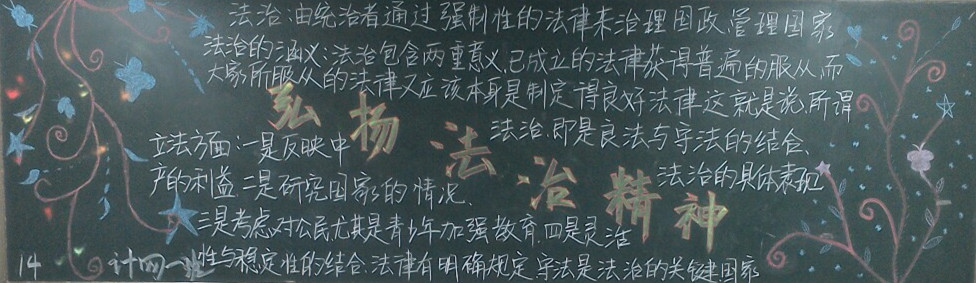 法治:由统治者通过强制性的法律来治理国政、管理国家
法治的涵义:法治包含两重意义,已成立的法律获得普遍的服从,而
大家所服从的法律又应该本身是制定得良好法律,这就是说,所谓
法治,即是良法与守法的结合、
弘扬法治精神
立法方面:一是反映中
产的利益 二是研究国家的情况、
法治的具体表现
三是考虑对公民尤其是青少年加强教育.四是灵活
性与稳定性的结合.法律有明确规定,守法是法治的关键.国家
14 计四一班